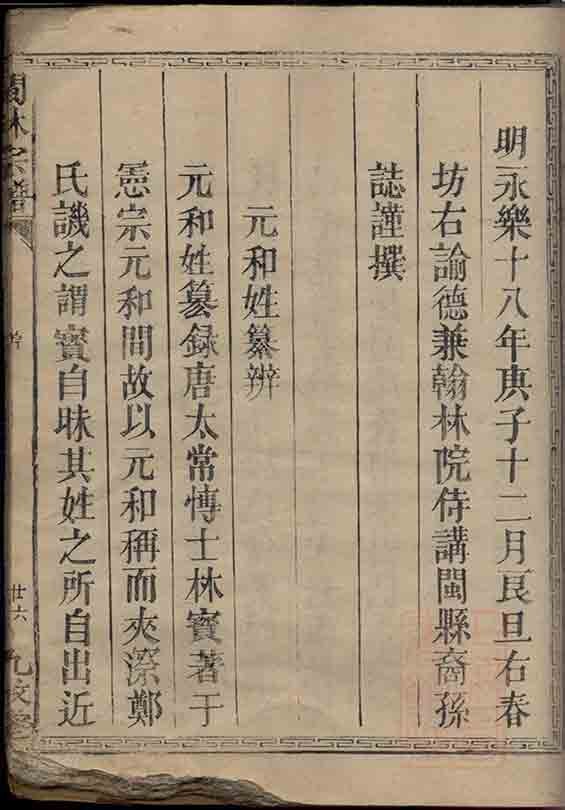 明永樂十八年庚子十二月艮旦右春
坊右諭德兼翰林院侍講閩縣裔孫
誌謹撰
元和姓纂辨
元和姓纂録唐太常愽士林寳著于
憲宗元和間故以元和稱而夾漈鄭
氏譏之謂寳自昧其姓之所自出近
林宗譜
廿六